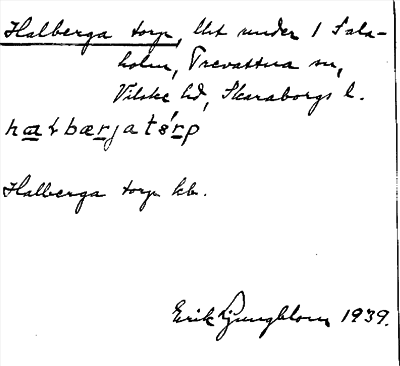 Halberga torp, lht under 1 Sala-
holm, Trevattna sn,
Vilske hd, Skaraborgs l.
haɫbærjatór̲p
Halberga torp kb.
Erik Ljungblom 1939.